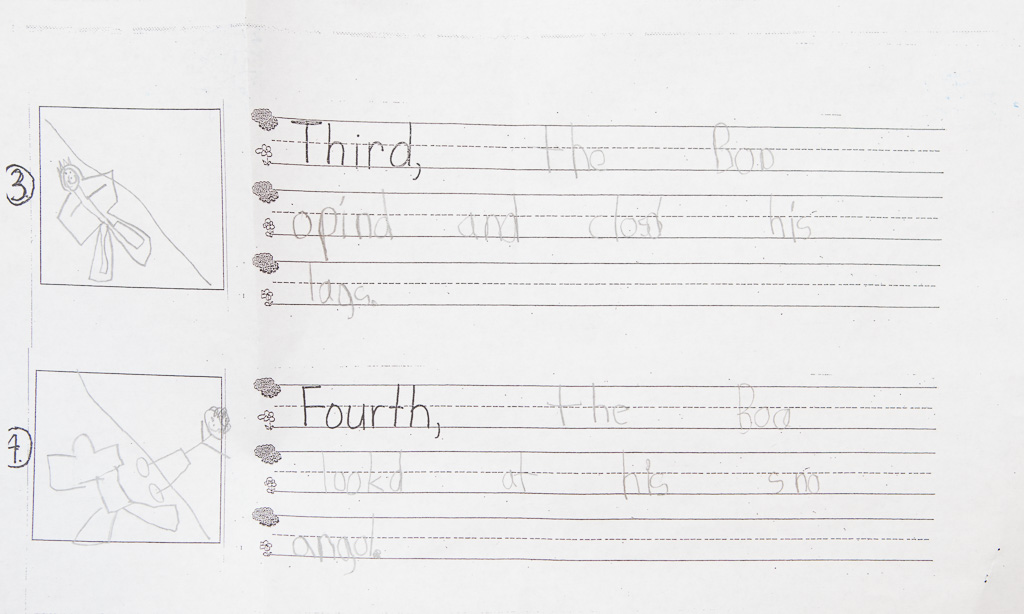 3
Third, the Boo
opind and closd his
lags.
4
Fourth, the Boo
lookd at his sno
angol.